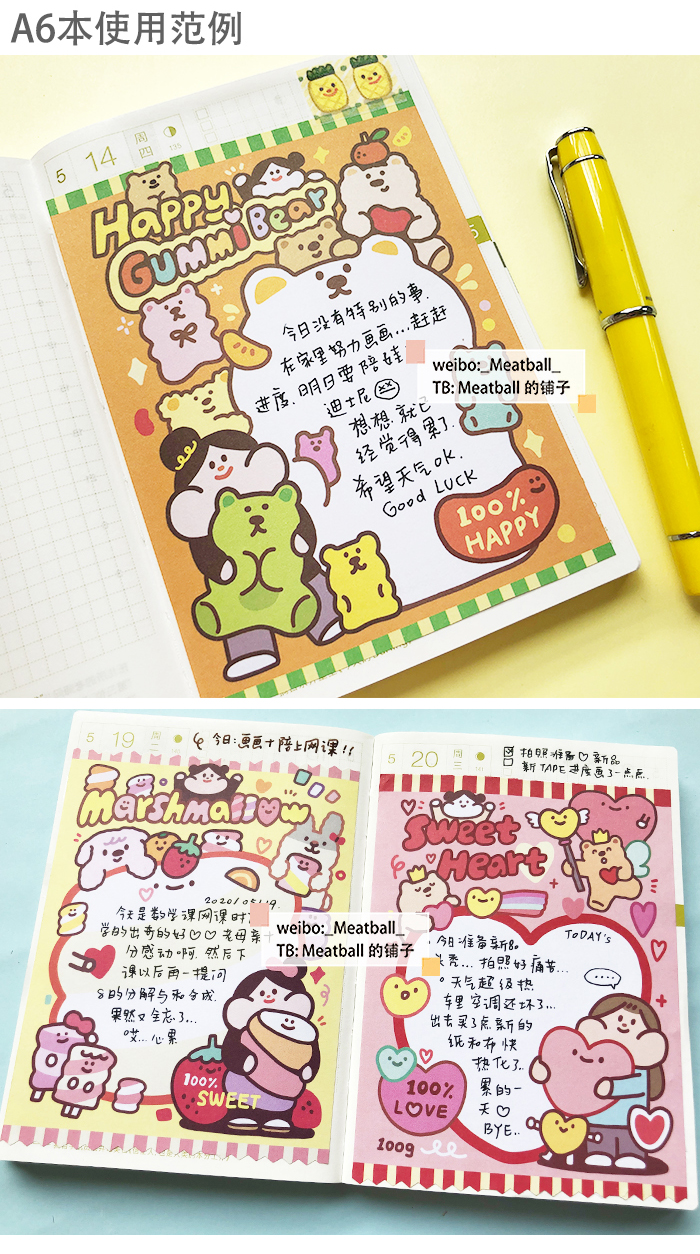 A6本使用范例
5 14 周四
135
Happy
Gummi Bear
今日没有特别的事.
在家里努力画画...赶赶
进度.明日要陪娃
迪士尼
想想就已
经觉得累了.
希望天气OK.
Good LUCK
100%
HAPPY
5
weibo:_Meatball_
TB: Meatball 的铺子
5 19 周二
今日:画画+陪上网课!!
Marshmallow
2020/05/19.
今天是数学课网课时
学的出奇的好♡♡老母亲
分感动啊.然后下
课以后再一提问
8的分解与和合成.
果然又全忘了...
哎...心累
100%
SWEET
weibo:_Meatball_
TB: Meatball 的铺子
5 20 周三
拍照准备♡新品
新TAPE进度画了一点点.
Sweet
Heart
TODAY's
今日准备新品
秃...拍照好痛苦...
天气超级热
车里空调还坏了...
出去买了点新的
纸和布快
热化了..
累的一
天♡
BYE..
100%
LOVE
100g